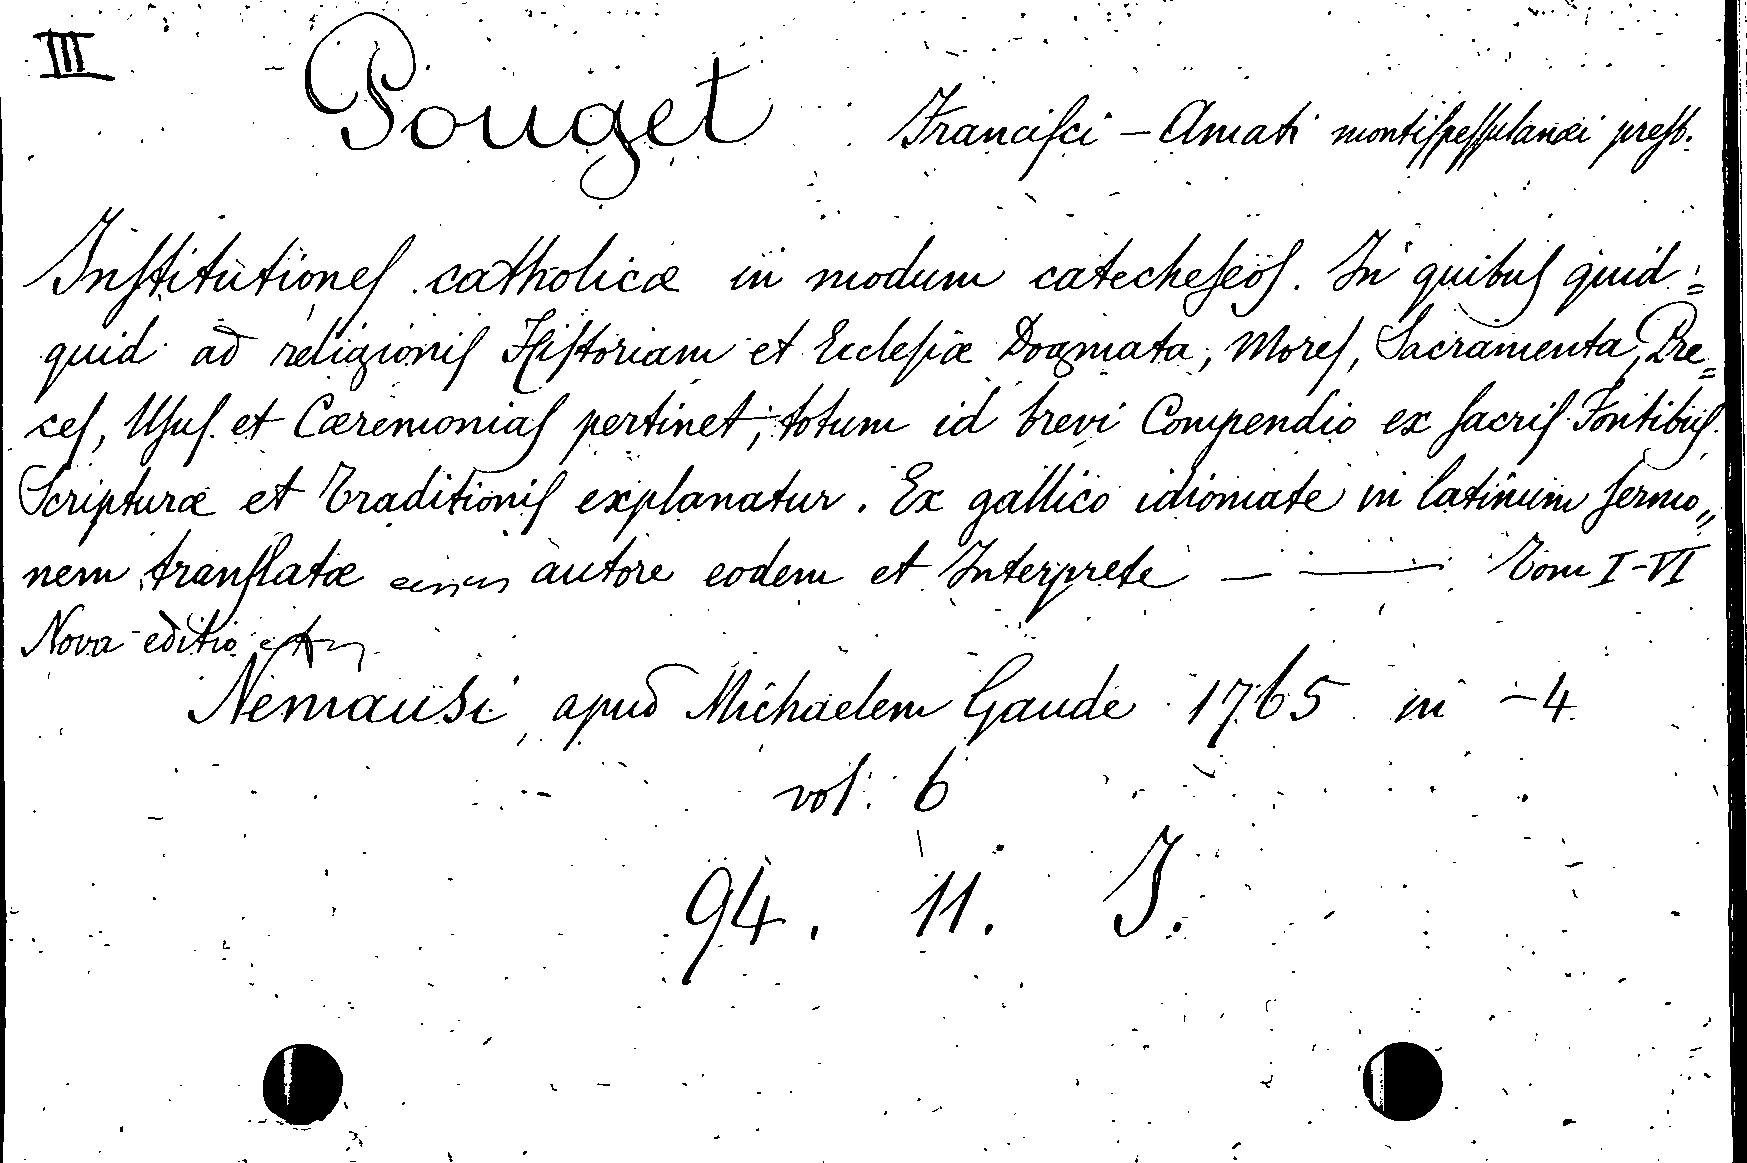 III
Pouget Franciſci - Amati montiſpeſſulanæi preſb.
Inſtitutioneſ catholicæ in modum catecheſeöſ. In quibuſ quid=
quid ad religioniſ Hiſtoriam et Eccleſiæ Dogmata, Moreſ, Sacramenta, Pre=
ceſ, Uſuſ et Cæremoniaſ pertinet, totum id brevi Compendio ex ſacriſ Fontibuſ
Scripturæ et Traditioniſ explanatur. Ex gallico idiomate in latinum ſermo„
nem tranſlatæ autore eodem et Interprete — —— Tom I-VI
Nova editio
Nemausi apud Michaelem Gaude 1765 in -4
vol. 6
94. 11. I.